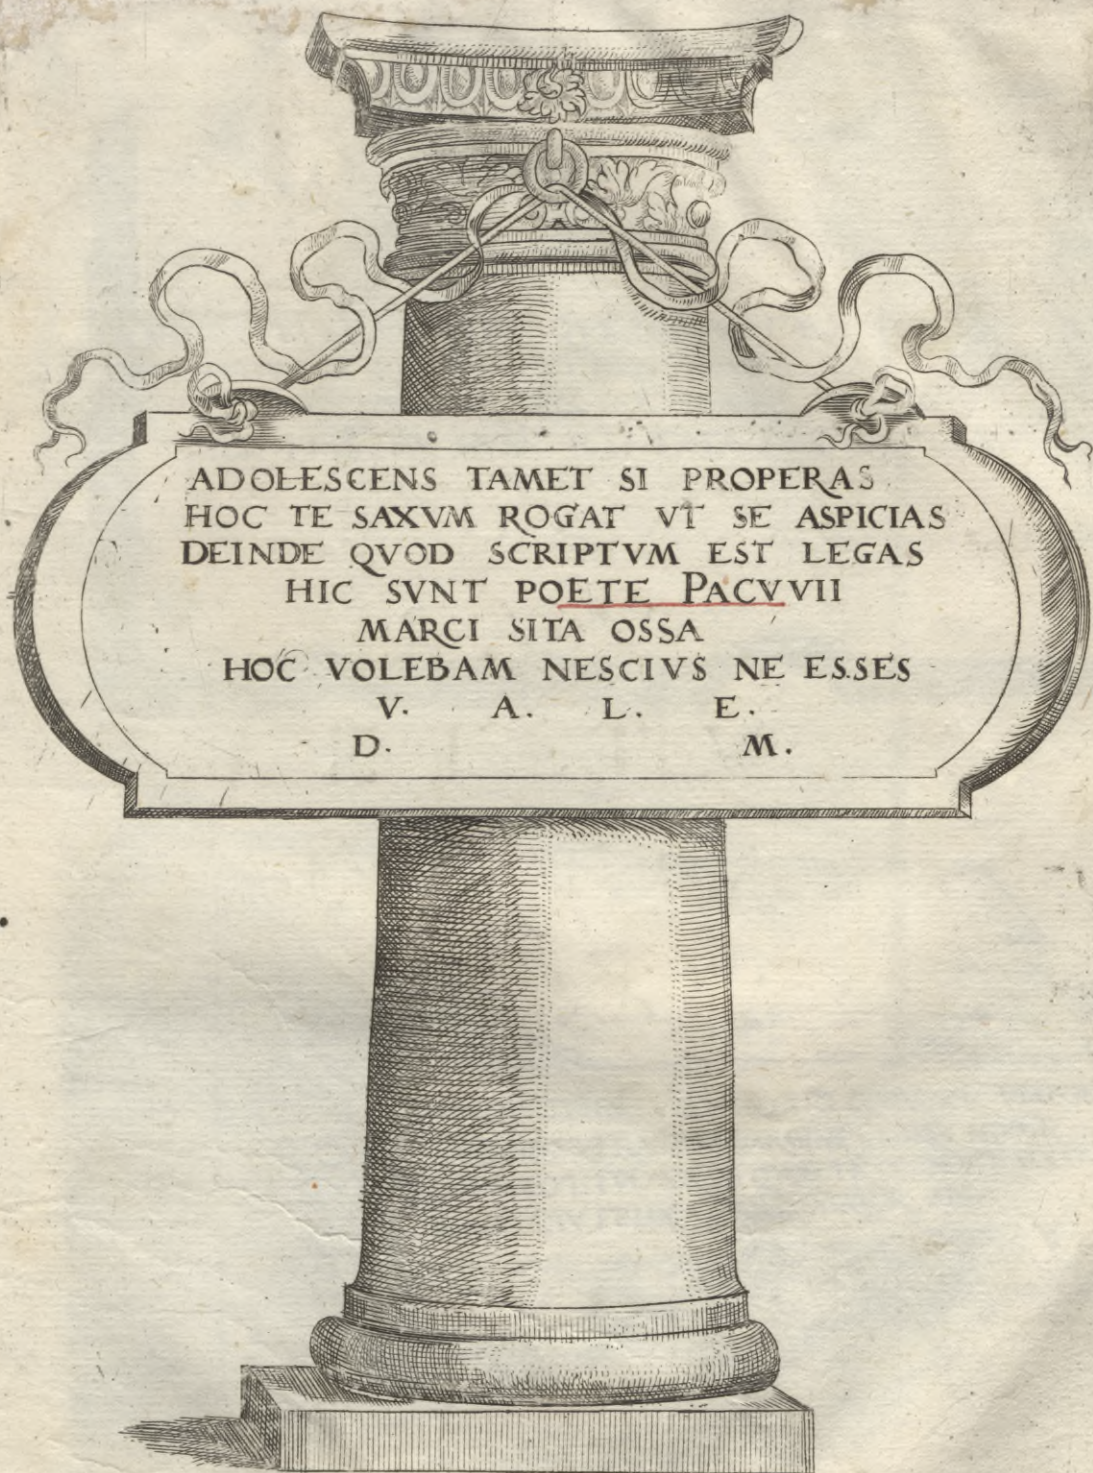 ADOLESCENS TAMET SI PROPERAS
HOC TE SAXVM ROGAT VT SE ASPICIAS
DEINDE QVOD SCRIPTVM EST LEGAS
HIC SVNT POETE PACVVII
MARCI SITA OSSA
HOC VOLEBAM NESCIVS NE ESSES
V. A. L. E.
D. M.